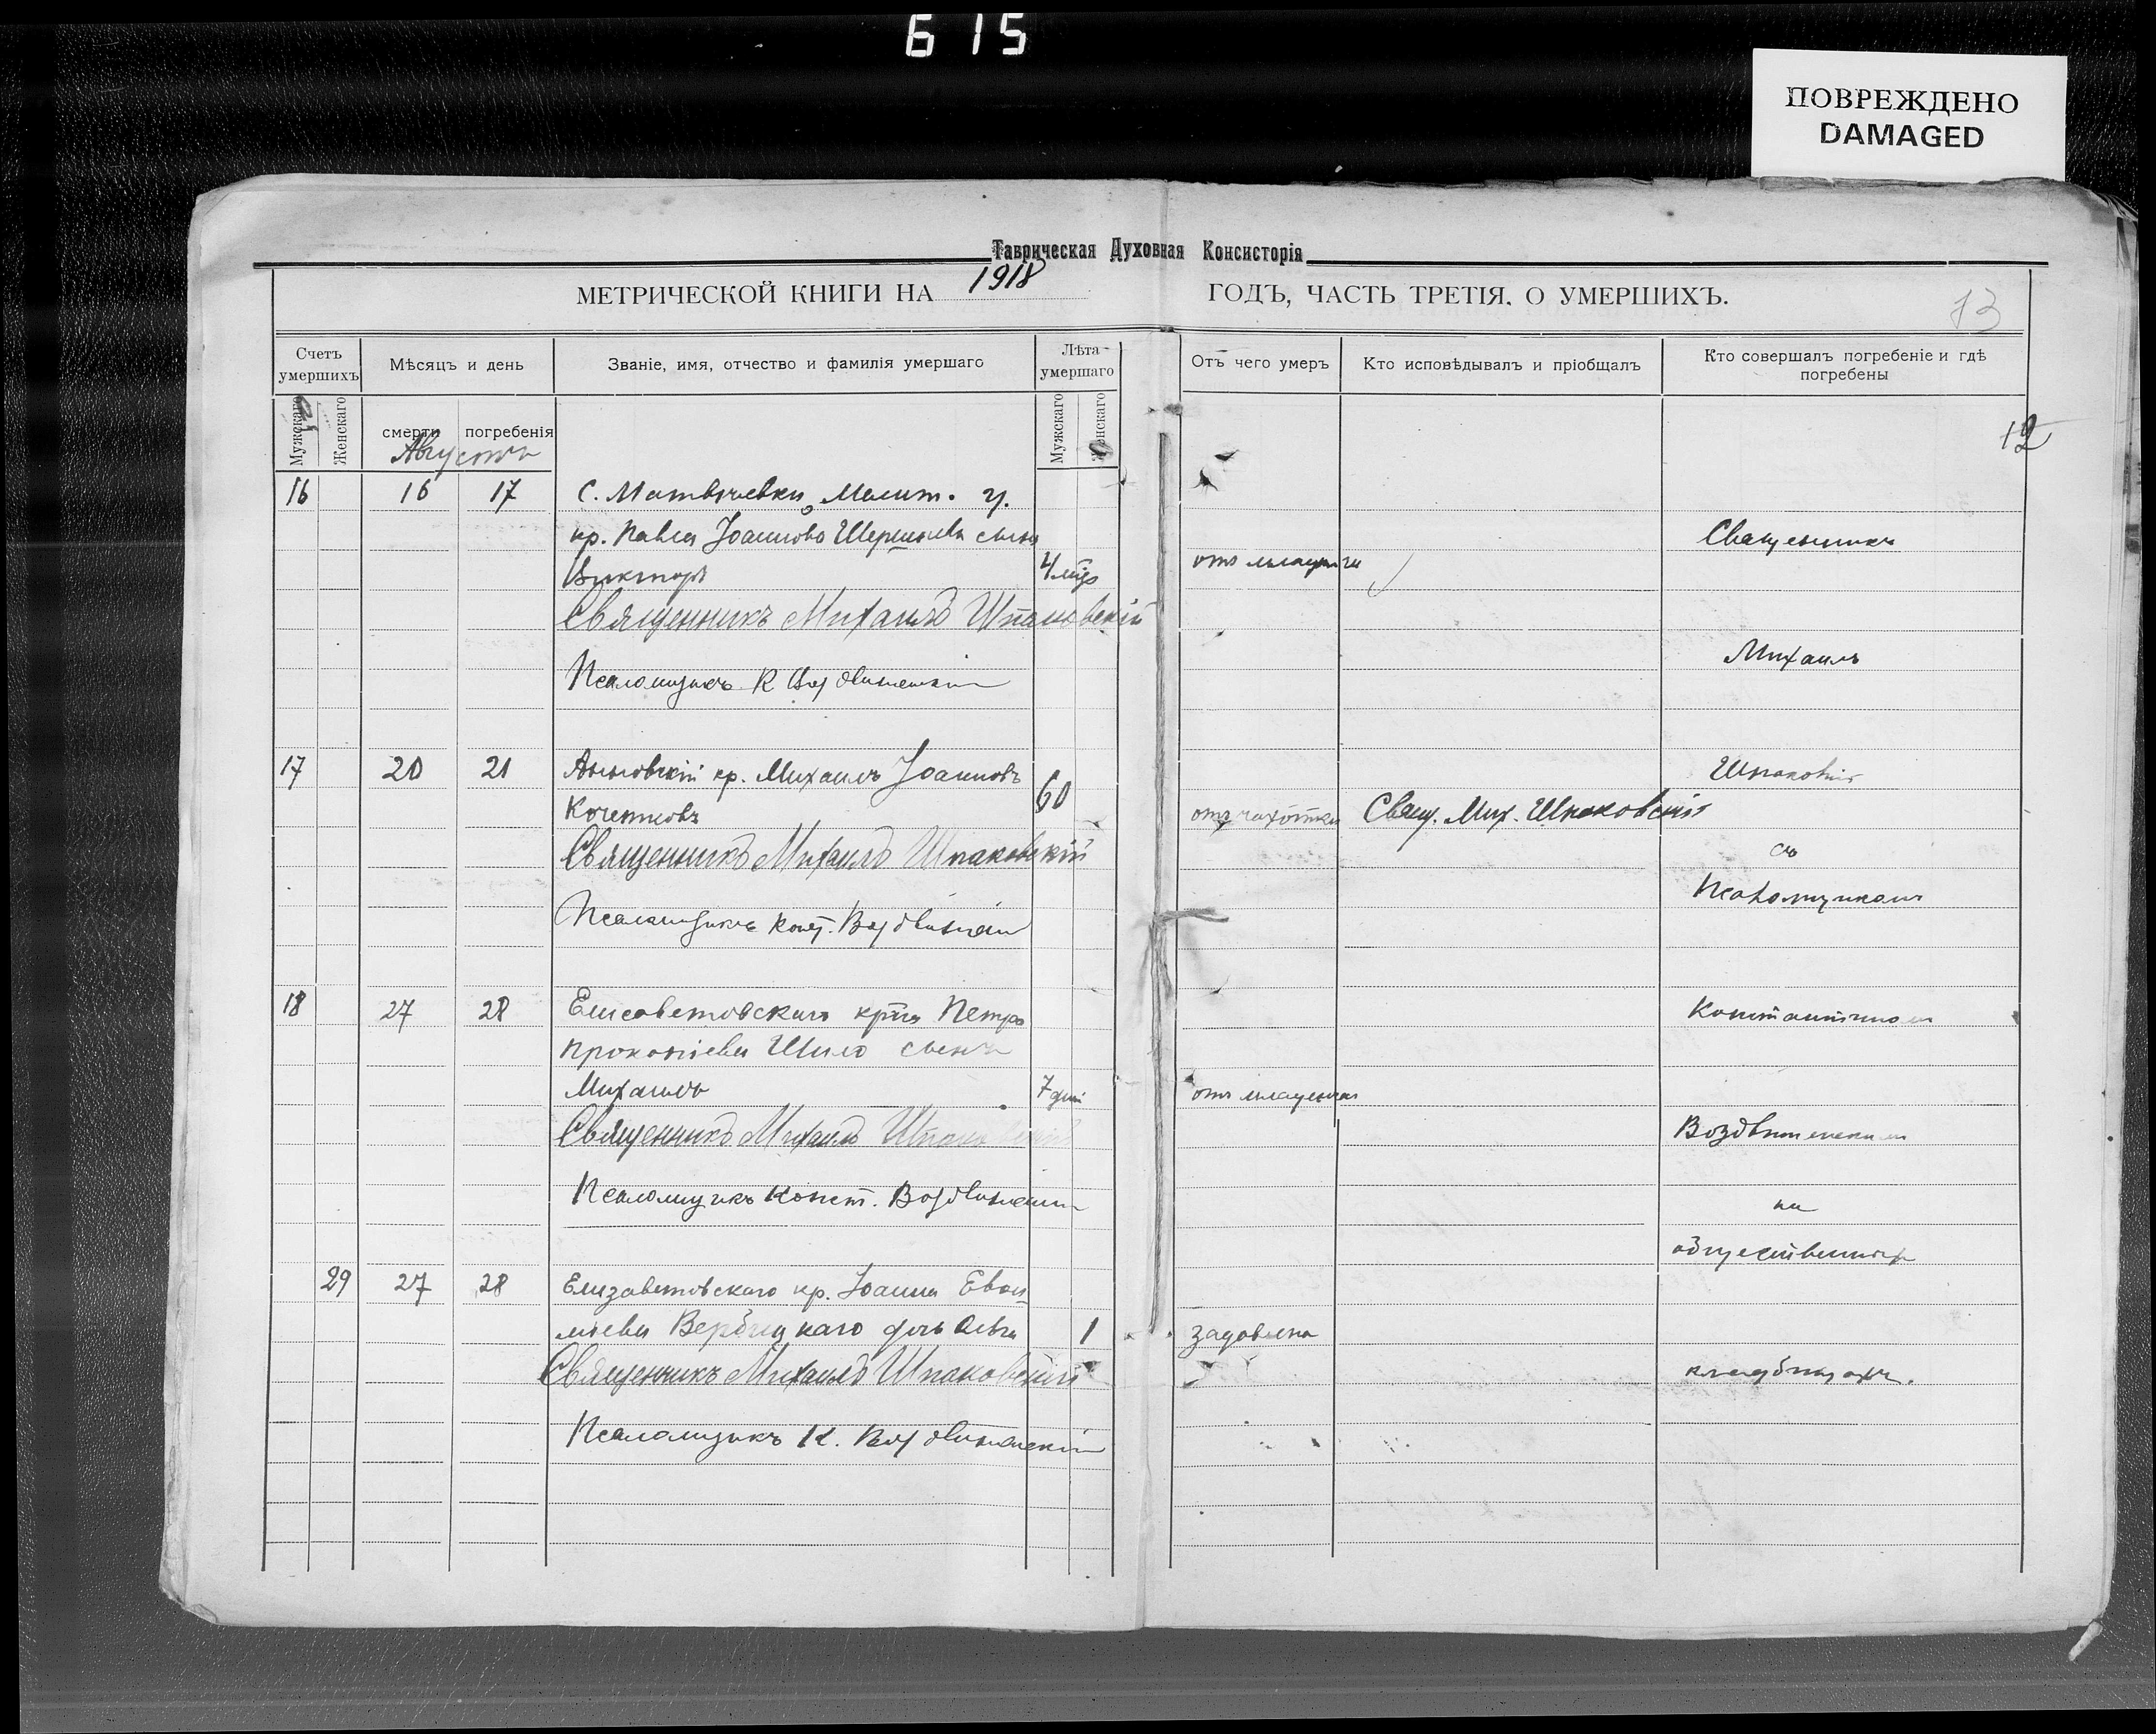 6 15
ПОВРЕЖДЕНО
DAMAGED
Таврическая Духовная Консисторія
МЕТРИЧЕСКОЙ КНИГИ НА 1918 ГОДЪ, ЧАСТЬ ТРЕТІЯ, О УМЕРШИХЪ.
13
12
Счетъ умершихъ
Мѣсяцъ и день
Званіе, имя, отчество и фамилія умершаго
Лѣта умершаго
Отъ чего умеръ
Кто исповѣдывалъ и пріобщалъ
Кто совершалъ погребеніе и гдѣ погребены
Мужскаго
Женскаго
смерти
погребенія
Мужскаго
Женскаго
Августъ
16 16 17 С. Матвѣевки, Мелит. у.
кр. Павла Іоаннова сынъ
Викторъ 4
Священникъ Михаилъ Шпаковскій
Псаломщикъ К Воздвиженскій
17 20 21 кр. Михаилъ Іоанновъ
Кочетковъ 60 отъ чахотки Свящ. Мих. Шпаковскій
Священникъ Михаилъ Шпаковскій
Псаломщикъ Конст. Воздвиженскій
18 27 28 Елисаветовскаго Петра
Прокопіева Шило сынъ
Михаилъ 7 дней
Священникъ Михаилъ Шпаковскій
Псаломщикъ Конст. Воздвиженскій
29 27 28 Елизаветовскаго кр. Іоанна Евѳи-
міева Вербицкаго дочь 1 задавлена
Священникъ Михаилъ Шпаковскій
Псаломщикъ К. Воздвиженскій
Священникъ
Михаилъ
Шпаковскій
съ
Псаломщикомъ
Константиномъ
Воздвиженскимъ
на
общественныхъ
кладбищахъ.